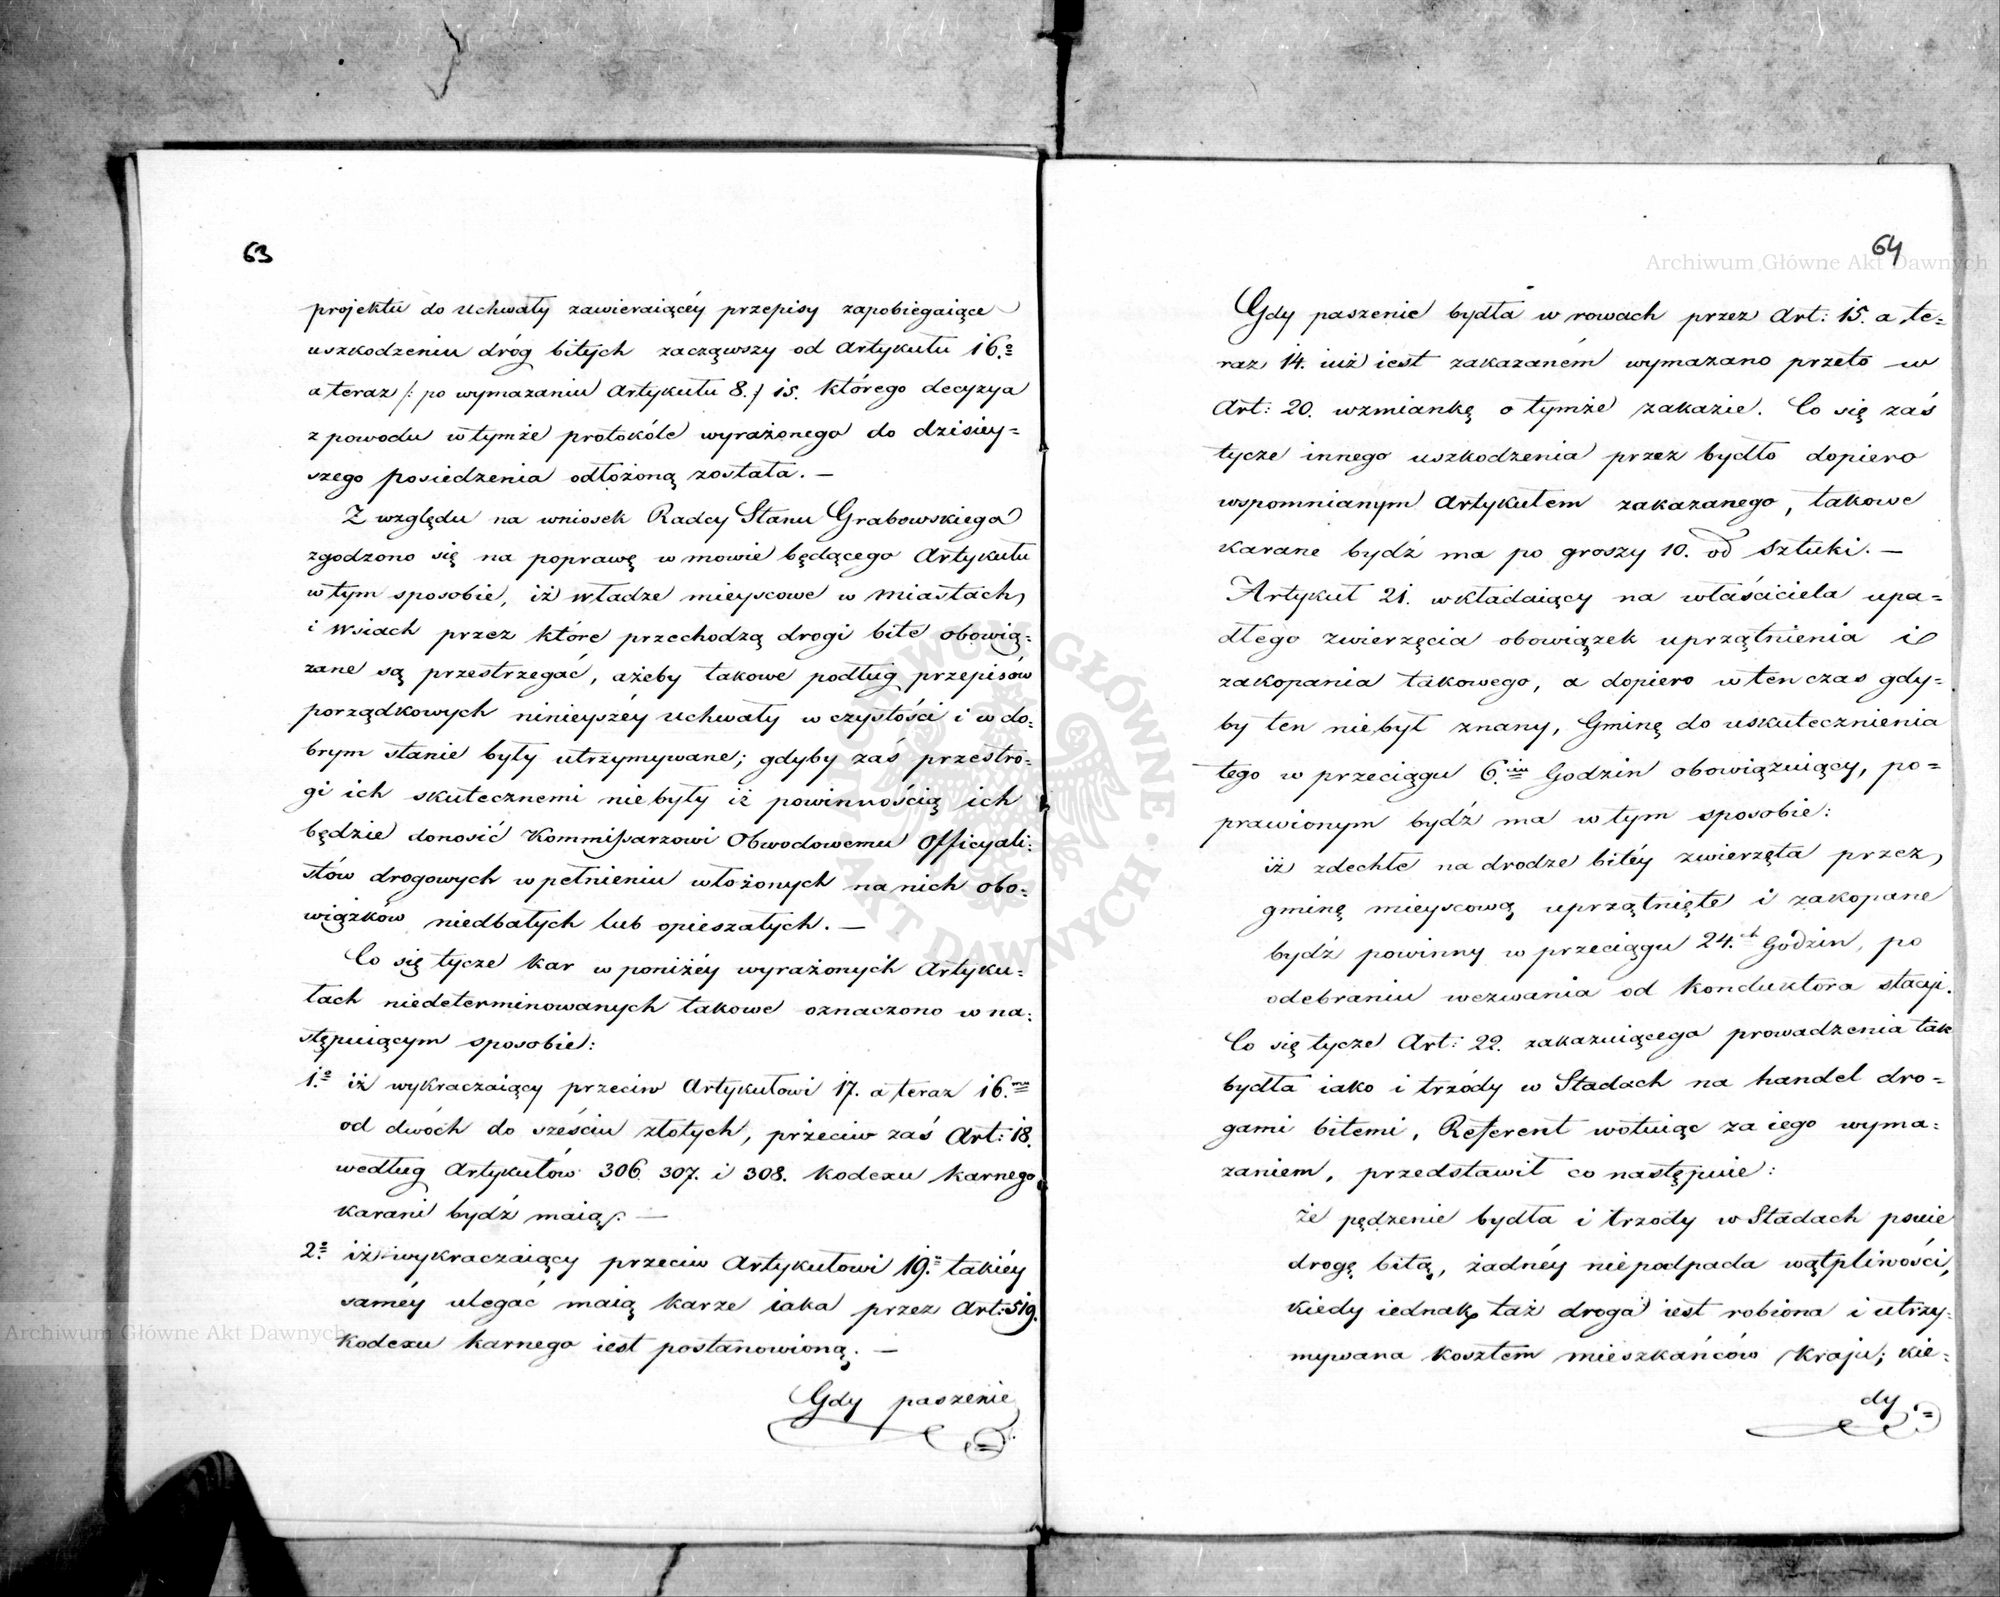 63
projektu do Uchwały zawieraiącéy przepisy zapobiegaiące
uszkodzeniu dróg bitych zacząwszy od Artykułu 16.º
a teraz /: po wymazaniu Artykułu 8. :/ 15. którego decyzya
z powodu w tymże protokóle wyrażonego do dzisiey=
szego posiedzenia odłożoną została. —
Z względu na wniosek Radcy Stanu Grabowskiego
zgodzono się na poprawę w mowie będącego Artykułu
w tym sposobie, iż władze mieyscowe w miastach,
i wsiach przez które przechodzą drogi bite obowią=
zane są przestrzegać, ażeby takowe podług przepisów
porządkowych ninieyszéy Uchwały w czystości i w do=
brym stanie były utrzymywane; gdyby zaś przestro=
gi ich skutecznemi nie były iż powinnością ich
będzie donosić Kommissarzowi Obwodowemu Officyali=
stów drogowych w pełnieniu włożonych na nich obo=
wiązków niedbałych lub opieszałych. —
Co się tycze kar w poniżéy wyrażonych Artyku=
łach niedeterminowanych takowe oznaczono w na=
stępuiącym sposobie:
1.º iż wykraczaiący przeciw Artykułowi 17. a teraz 16.mu
od dwóch do sześciu złotych, przeciw zaś Art: 18.
według Artykułów 306. 307. i 308. Kodexu karnego
karani bydź maią. —
2.º iż wykraczaiący przeciw Artykułowi 19.º takiéy
saméy ulegać maią karze iaka przez Art: 519.
Kodexu karnego iest postanowioną. —
Gdy paszenie
64
Gdy paszenie bydła w rowach przez Art: 15. a te=
raz 14. iuż iest zakazaném wymazano przeto w
Art: 20. wzmiankę o tymże zakazie. Co się zaś
tycze innego uszkodzenia przez bydło dopiero
wspomnianym Artykułem zakazanego, takowe
karane bydź ma po groszy 10. od Sztuki. —
Artykuł 21. wkładaiący na właściciela upa=
dłego zwierzęcia obowiązek uprzątnienia i
zakopania takowego, a dopiero w ten czas gdy=
by ten niebył znany, Gminę do uskutecznienia
tego w przeciągu 6.iu Godzin obowiązuiący, po=
prawionym bydź ma w tym sposobie:
iż zdechłe na drodze bitéy zwierzęta przez
gminę mieyscową uprzątnięte i zakopane
bydź powinny w przeciągu 24.ch Godzin, po
odebraniu wezwania od Konduktora stacyi.
Co się tycze Art: 22. zakazuiącego prowadzenia tak
bydła iako i trzódy w Stadach na handel dro=
gami bitemi, Referent wotuiąc za iego wyma=
zaniem, przedstawił co następuie:
że pędzenie bydła i trzody w Stadach psuie
drogę bitą, żadnéy niepodpada wątpliwości,
kiedy iednak taż droga iest robiona i utrzy=
mywana kosztem mieszkańców Kraju; kie=
dy
Archiwum Główne Akt Dawnych
Archiwum Główne Akt Dawnych
ARCHIWUM GŁÓWNE AKT DAWNYCH